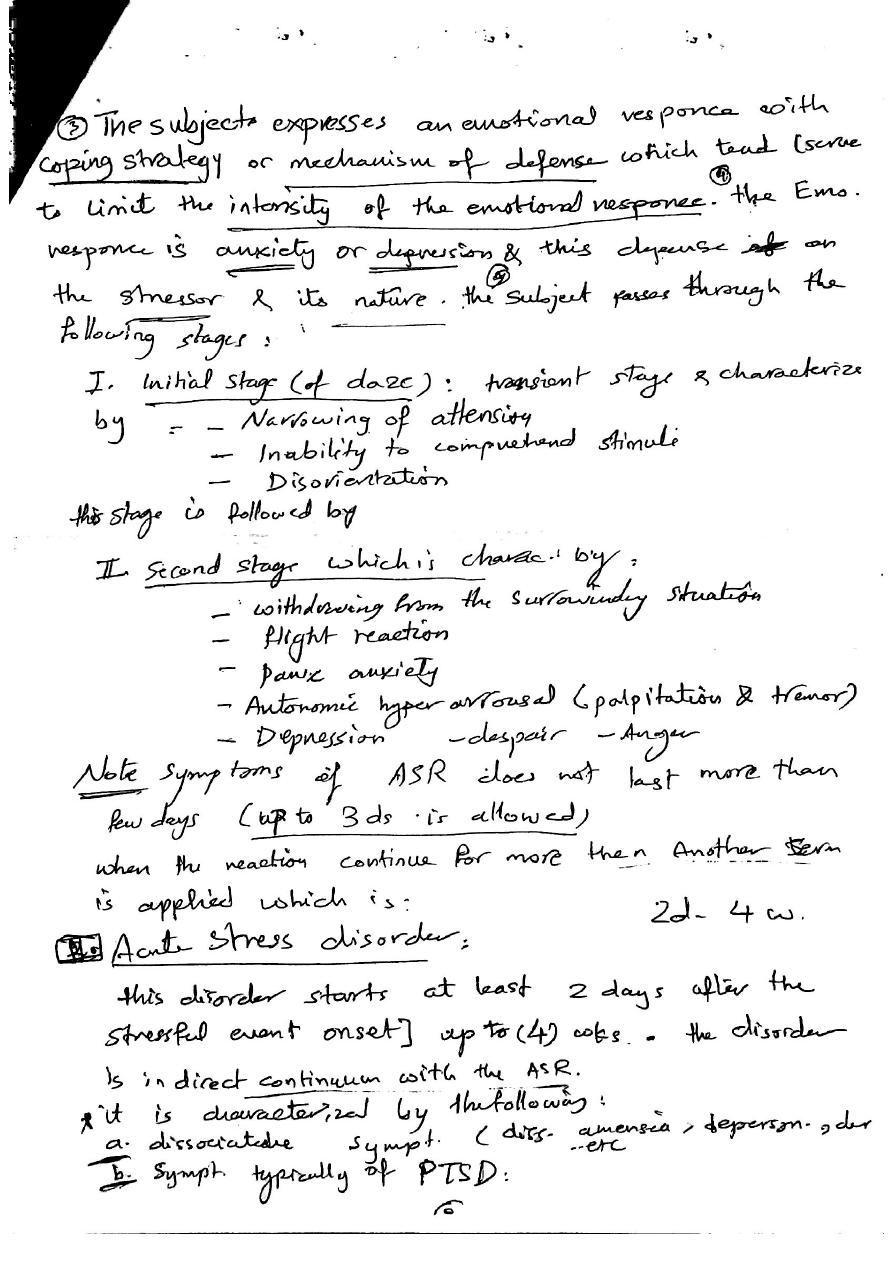 ③ The subjects expresses an emotional responce with
coping strategy or mechanism of defense which tend (serve
to limit the intensity of the emotional responce. ④ the Emo.
responce is anxiety or depression & this depense on
the stressor & its nature. ⑤ the subject passes through the
following stages:
I. Initial stage (of daze): transient stage & characterize
by = - Narrowing of attension
- Inability to comprehend stimuli
- Disorientation
this stage is followed by
II. Second stage which is charac. by:
- withdrowing from the surrowindey situation
- flight reaction
- panic anxiety
- Autonomic hyper arrousal (palpitation & tremor)
- Depression - despair - Anger
Note symptoms of ASR does not last more than
few days (up to 3 ds is allowed)
when the reaction continue for more then Another term
is applied which is:
2d - 4 w.
II. Acute stress disorder:
this disorder starts at least 2 days after the
stressful event onset] up to (4) wks. the disorder
is in direct continuum with the ASR.
* it is characterized by the following:
a. dissociatedve sympt. (diss. amensia, deperson., der
--etc
b. sympt. typically of PTSD: